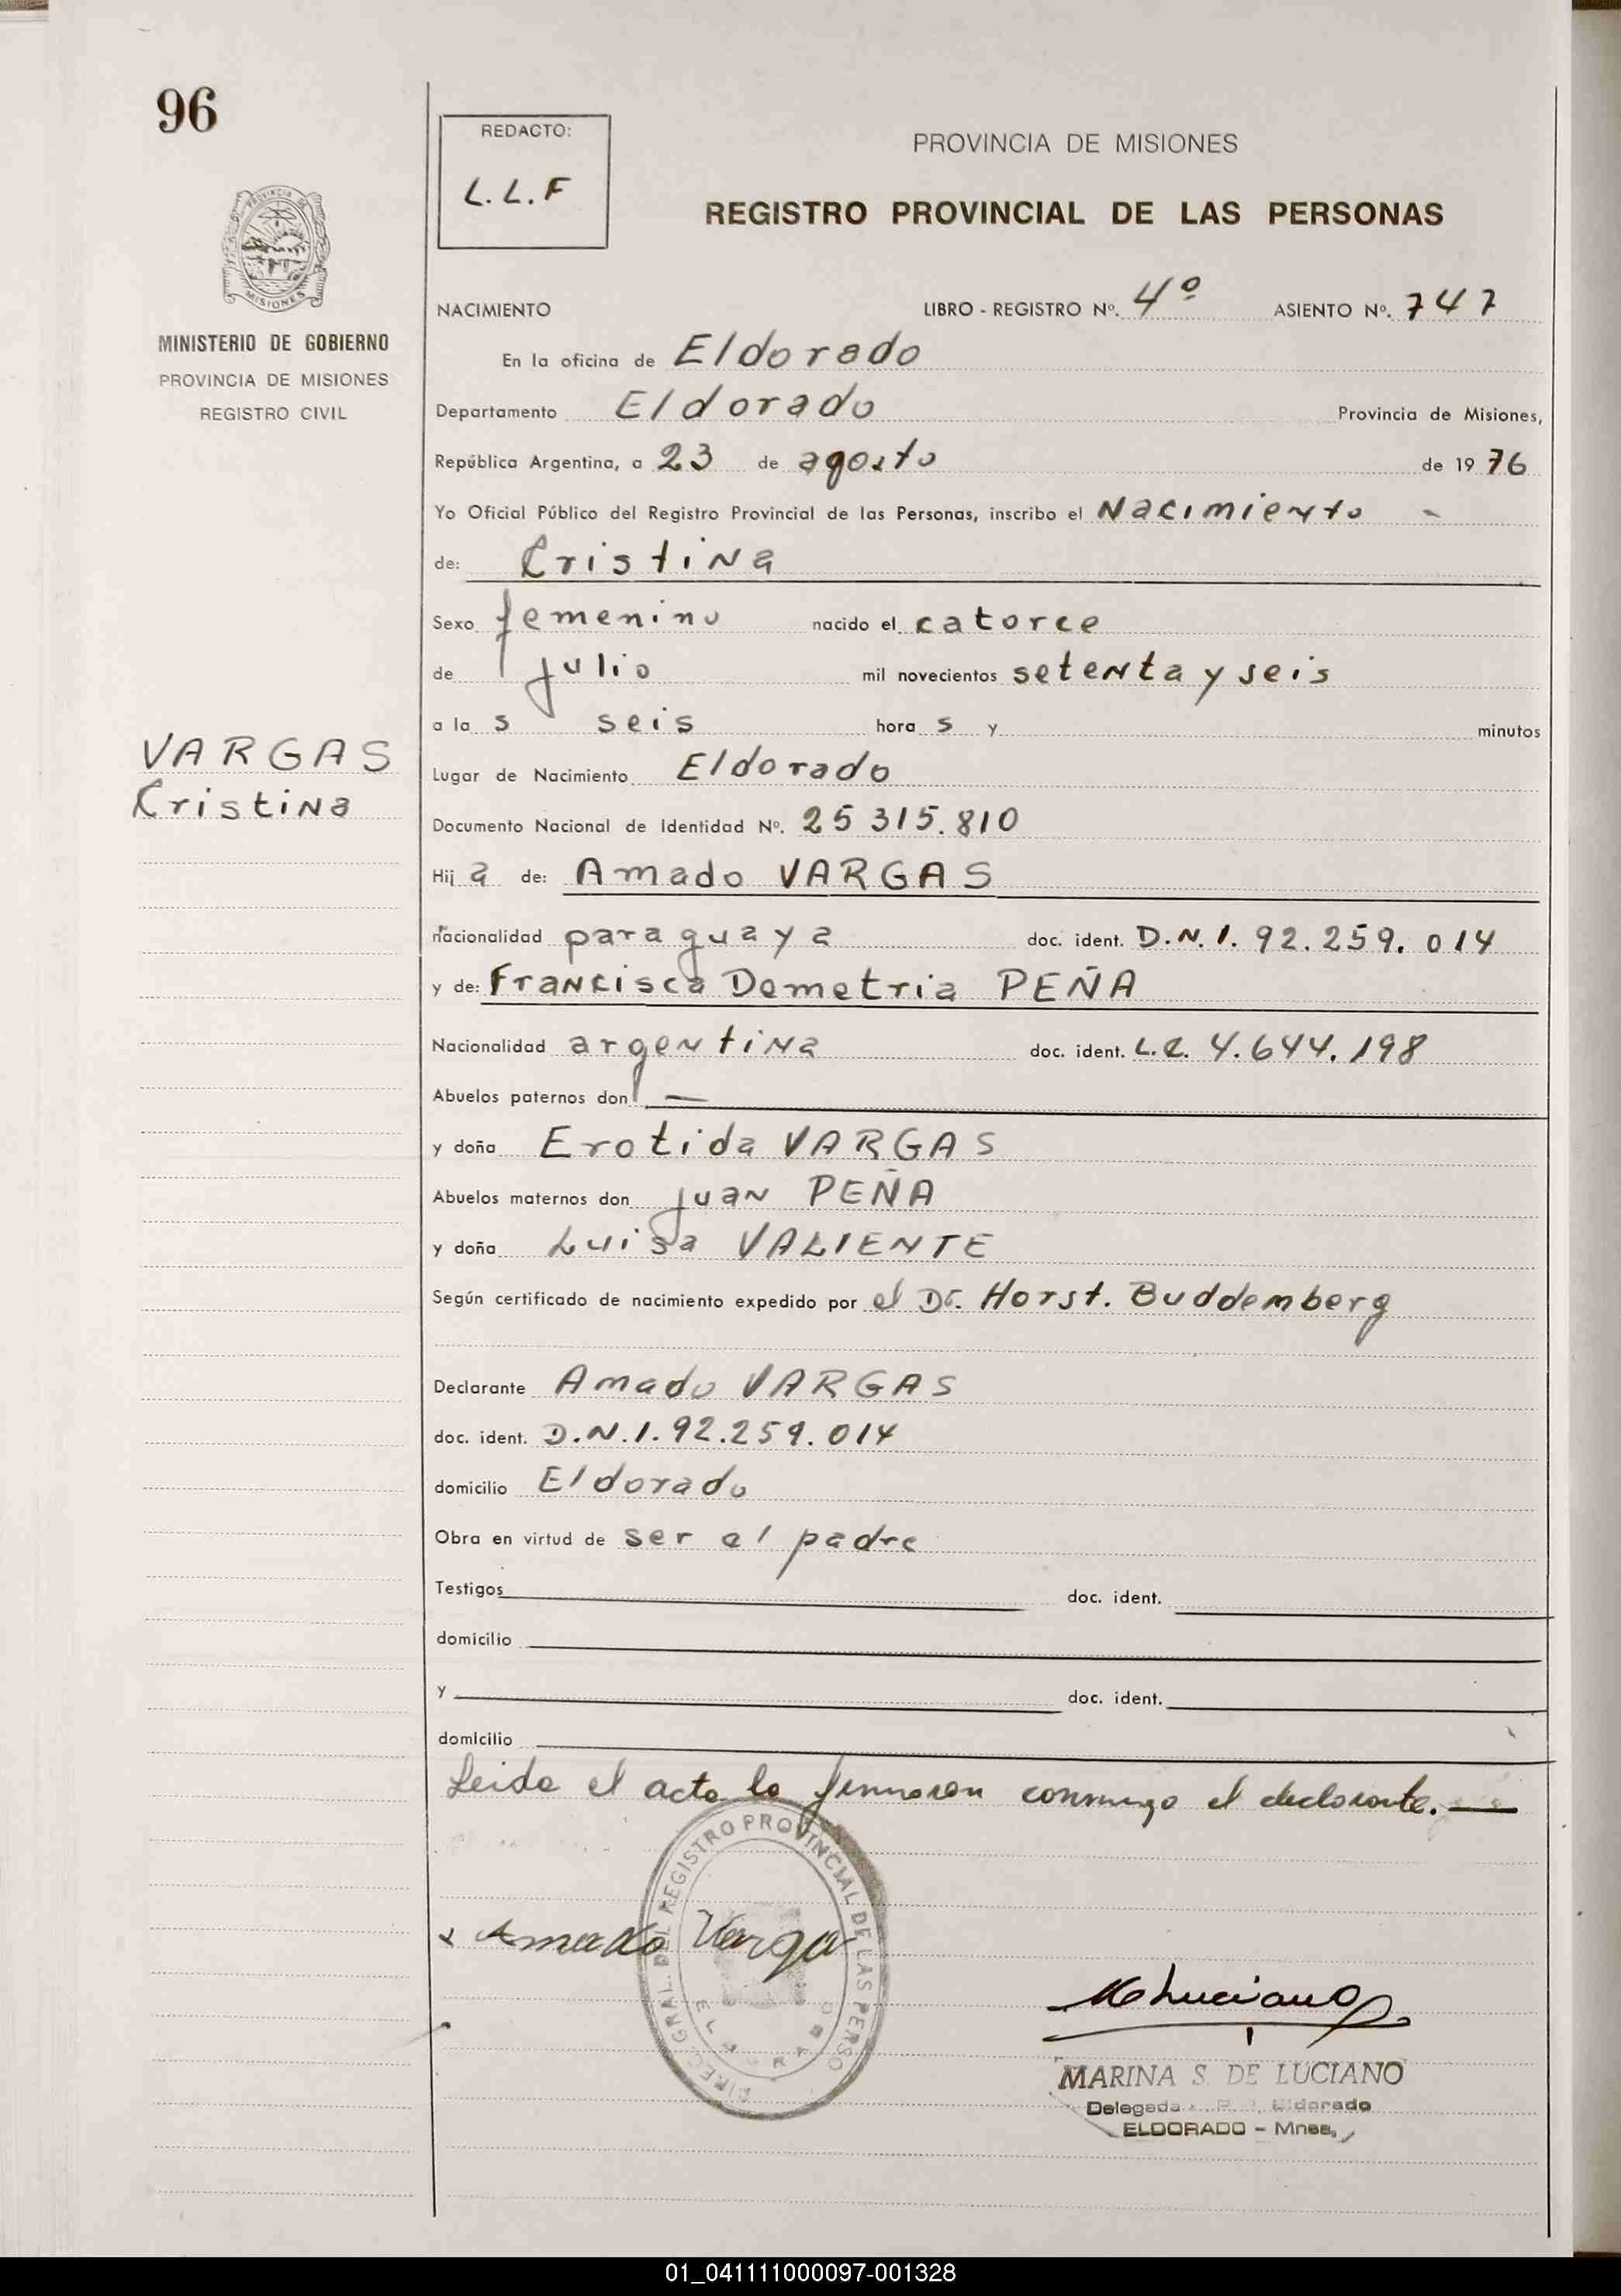 96
REDACTO:
L.L.F
PROVINCIA DE MISIONES
REGISTRO PROVINCIAL DE LAS PERSONAS
PROVINCIA DE
MISIONES
MINISTERIO DE GOBIERNO
PROVINCIA DE MISIONES
REGISTRO CIVIL
NACIMIENTO LIBRO - REGISTRO Nº. 4º ASIENTO Nº. 747
En la oficina de Eldorado
Departamento Eldorado Provincia de Misiones,
República Argentina, a 23 de agosto de 1976
Yo Oficial Público del Registro Provincial de las Personas, inscribo el Nacimiento -
de: Cristina
Sexo femenino nacido el catorce
de julio mil novecientos setenta y seis
a la s seis hora s y minutos
VARGAS
Cristina
Lugar de Nacimiento Eldorado
Documento Nacional de Identidad Nº. 25 315.810
Hij a de: Amado VARGAS
nacionalidad paraguaya doc. ident. D.N.I. 92.259.014
y de: Francisca Demetria PEÑA
Nacionalidad argentina doc. ident. L.C. 4.644.198
Abuelos paternos don —
y doña Erotida VARGAS
Abuelos maternos don juan PEÑA
y doña Luisa VALIENTE
Según certificado de nacimiento expedido por el Dr. Horst. Buddemberg
Declarante Amado VARGAS
doc. ident. D.N.I. 92.259.014
domicilio Eldorado
Obra en virtud de ser el padre
Testigos doc. ident.
domicilio
y doc. ident.
domicilio
Leida el acta la firmaron conmigo el declarante.—
DIREC. GRAL. DEL REGISTRO PROVINCIAL DE LAS PERSO
ELDORADO
x Amado Vargas
MLuciano
MARINA S. DE LUCIANO
Delegada Eldorado
ELDORADO - Mnes.
01_041111000097-001328